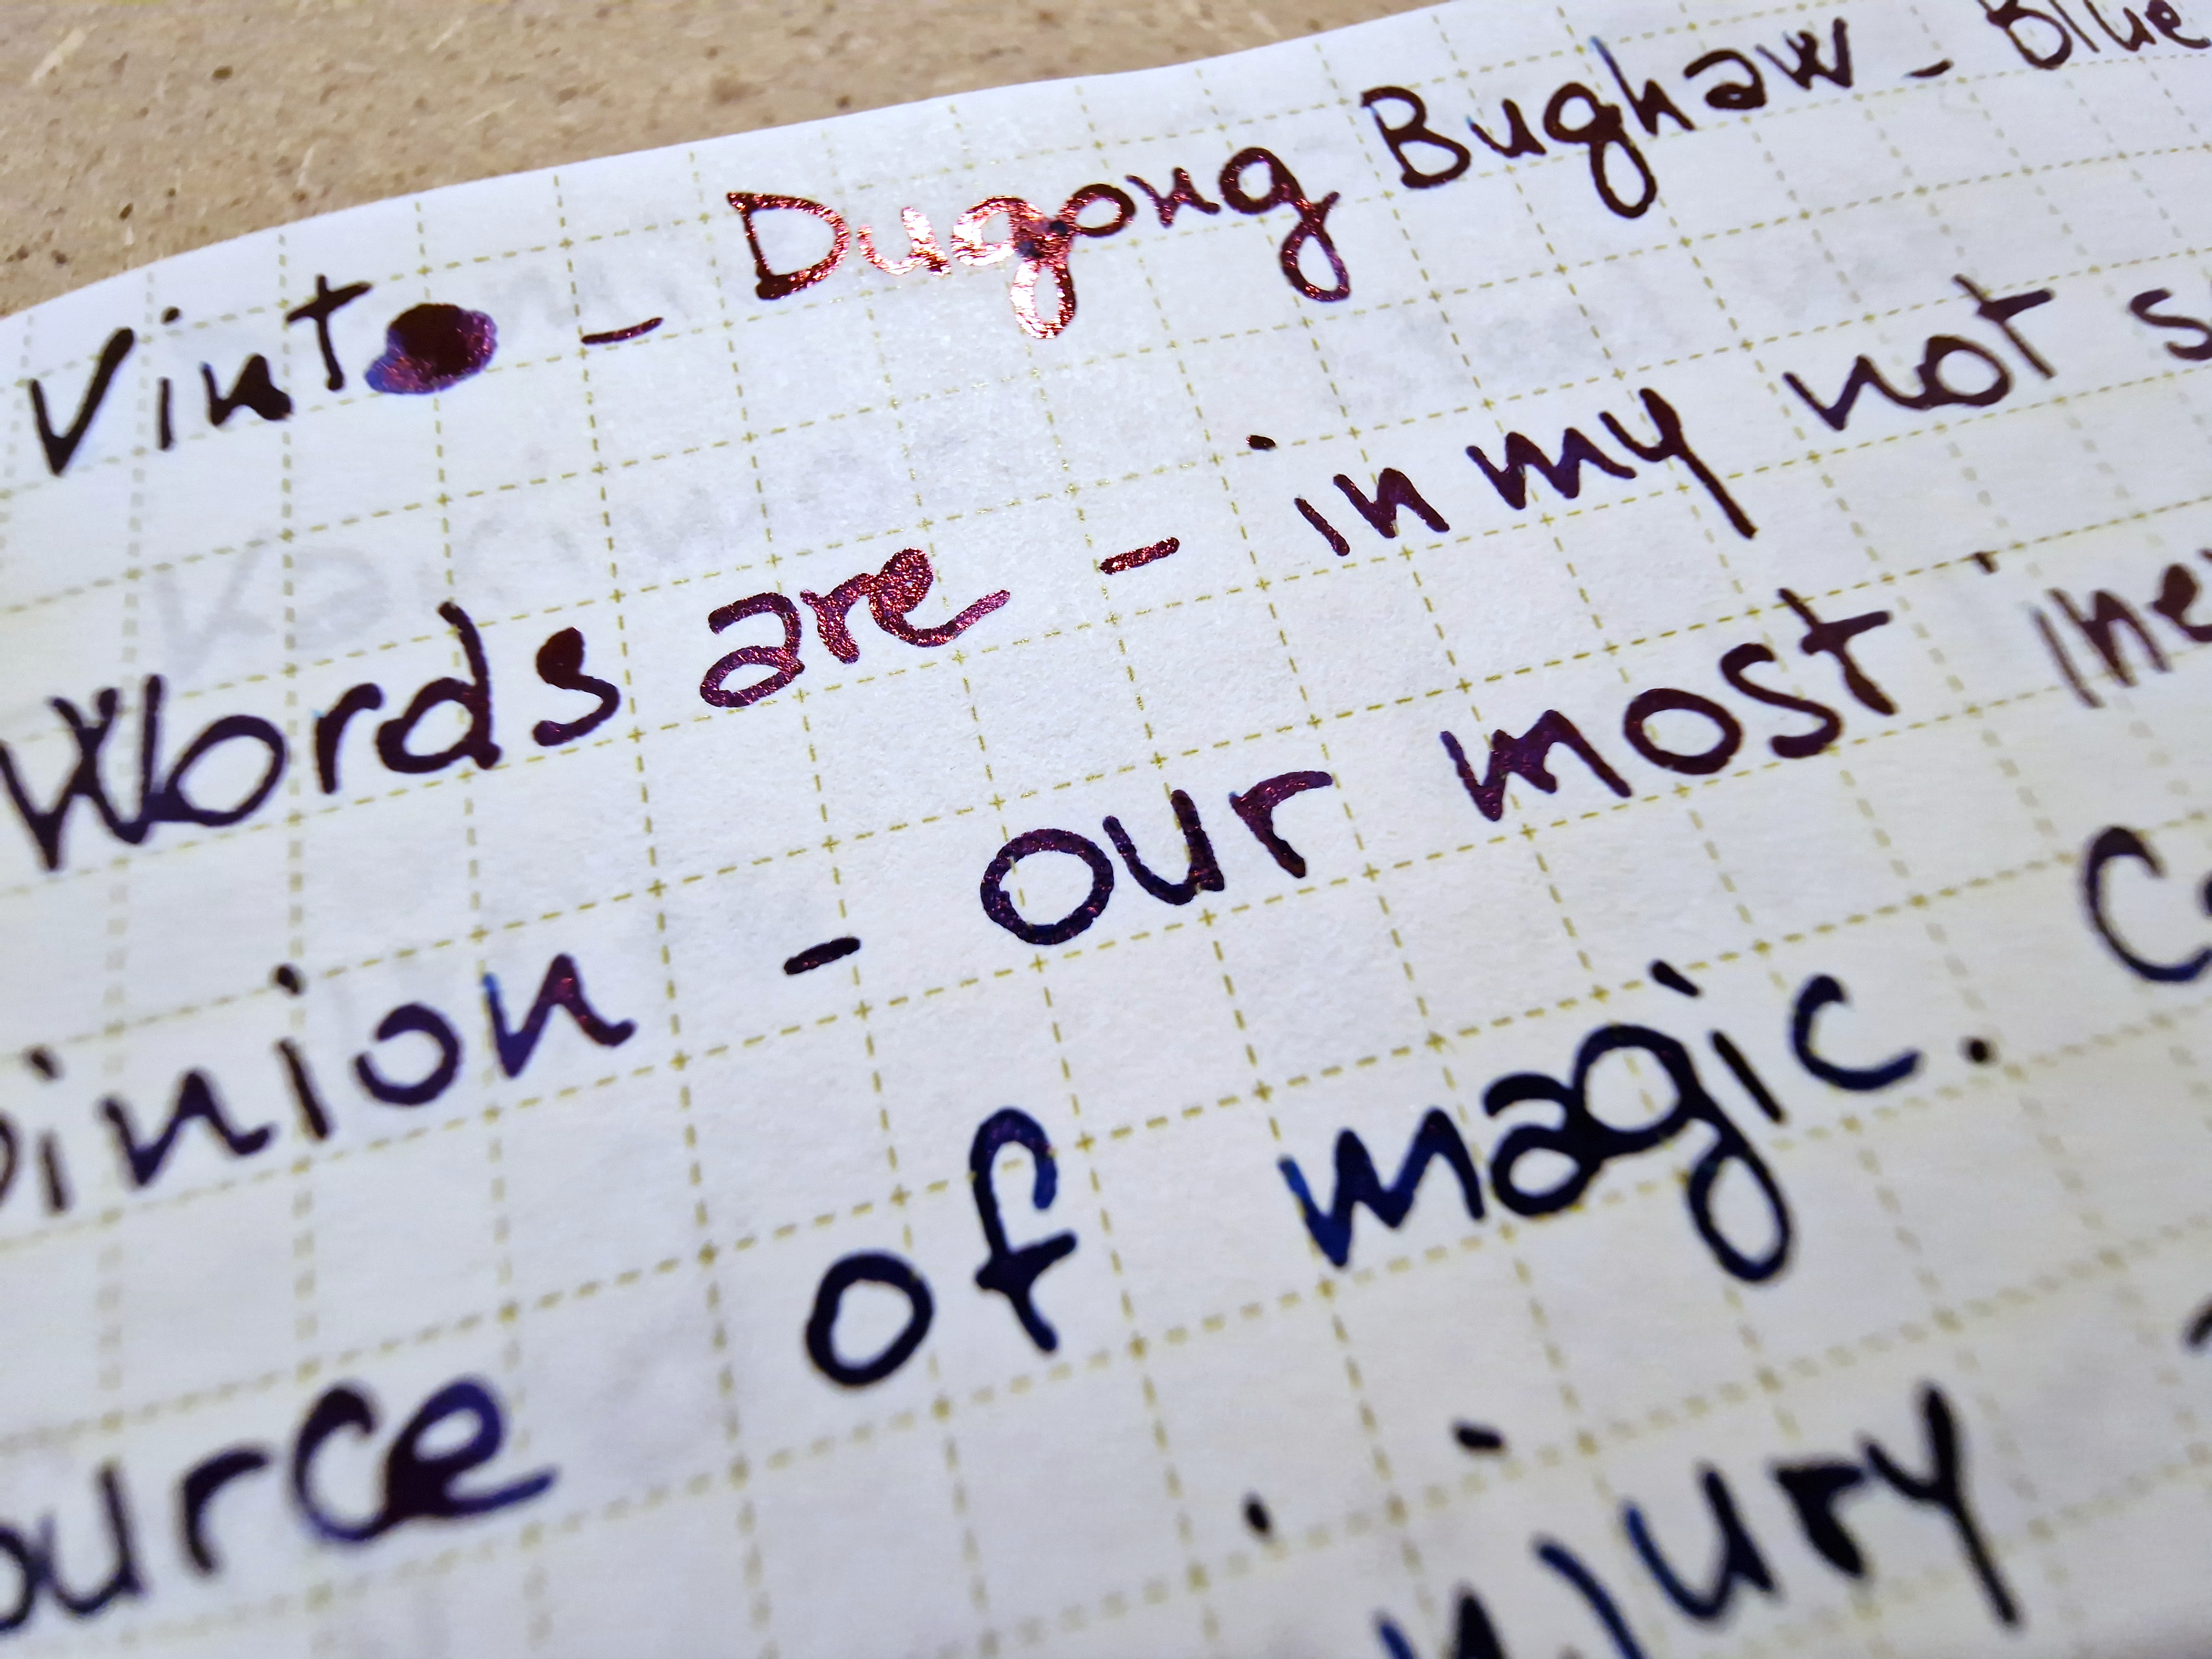 Vinto - Dugong Bughaw - Blue
Words are - in my not s
pinion - our most ine
ource of magic. Ca
injury